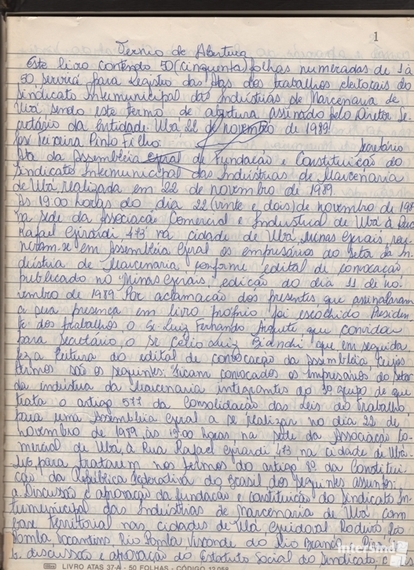 1
Termo de Abertura
Este livro contendo 50 (cinquenta) folhas numeradas de 1 à
50 servirá para registro das Atas dos trabalhos eleitorais do
Sindicato Intermunicipal das Indústrias de Marcenaria de
Ubá, sendo este termo de abertura assinado pelo Diretor Se-
cretário da entidade. Ubá 22 de novembro de 1989.
José Teixeira Pinto Filho
Secretário
Ata da Assembléia Geral de Fundação e Constituição do
Sindicato Intermunicipal das Industrias de Marcenaria
de Ubá realizada em 22 de novembro de 1989
Às 19:00 horas do dia 22 (vinte e dois) de novembro de 198
na sede da Associação Comercial e Industrial de Ubá à Rua
Rafael Girardi 473 na cidade de Ubá, Minas Gerais, reu
niram-se em Assembléia Geral os empresários do Setor da In
dústria de Marcenaria, conforme edital de convocação
publicado no "Minas Gerais", edição do dia 11 de no-
vembro de 1989. Por aclamação dos presentes, que assinalaram
a sua presença em livro próprio, foi escolhido Presiden
te dos trabalhos o Sr Luiz Fernando que convidou
para Secretário, o Sr Célio Luiz que em seguida
fez a leitura do edital de convocação da assembléia, cujos
termos são os seguintes: Ficam convocados os empresários do Setor
da indústria da Marcenaria integrantes do 3º grupo de que
trata o artigo 577 da Consolidação das Leis do Trabalho
para uma Assembléia Geral a se realizar no dia 22 de
novembro de 1989, às 19:00 horas, na sede da Associação Co-
mercial de Ubá, à Rua Rafael Girardi 473 na cidade de Ubá-
para tratarem nos termos do artigo 8º da Constitui-
ção da República Federativa do Brasil dos seguintes assuntos:
a discussão e aprovação da fundação e constituição do Sindicato In
termunicipal das Indústrias de Marcenaria de Ubá com
base territorial nas cidades de Ubá, Guidoval, Rodeiro, São
Tocantins, Rio Pomba, Visconde do Rio Branco,
b. discussão e aprovação do Estatuto Social do Sindicato
LIVRO ATAS 37-A - 50 FOLHAS - CÓDIGO